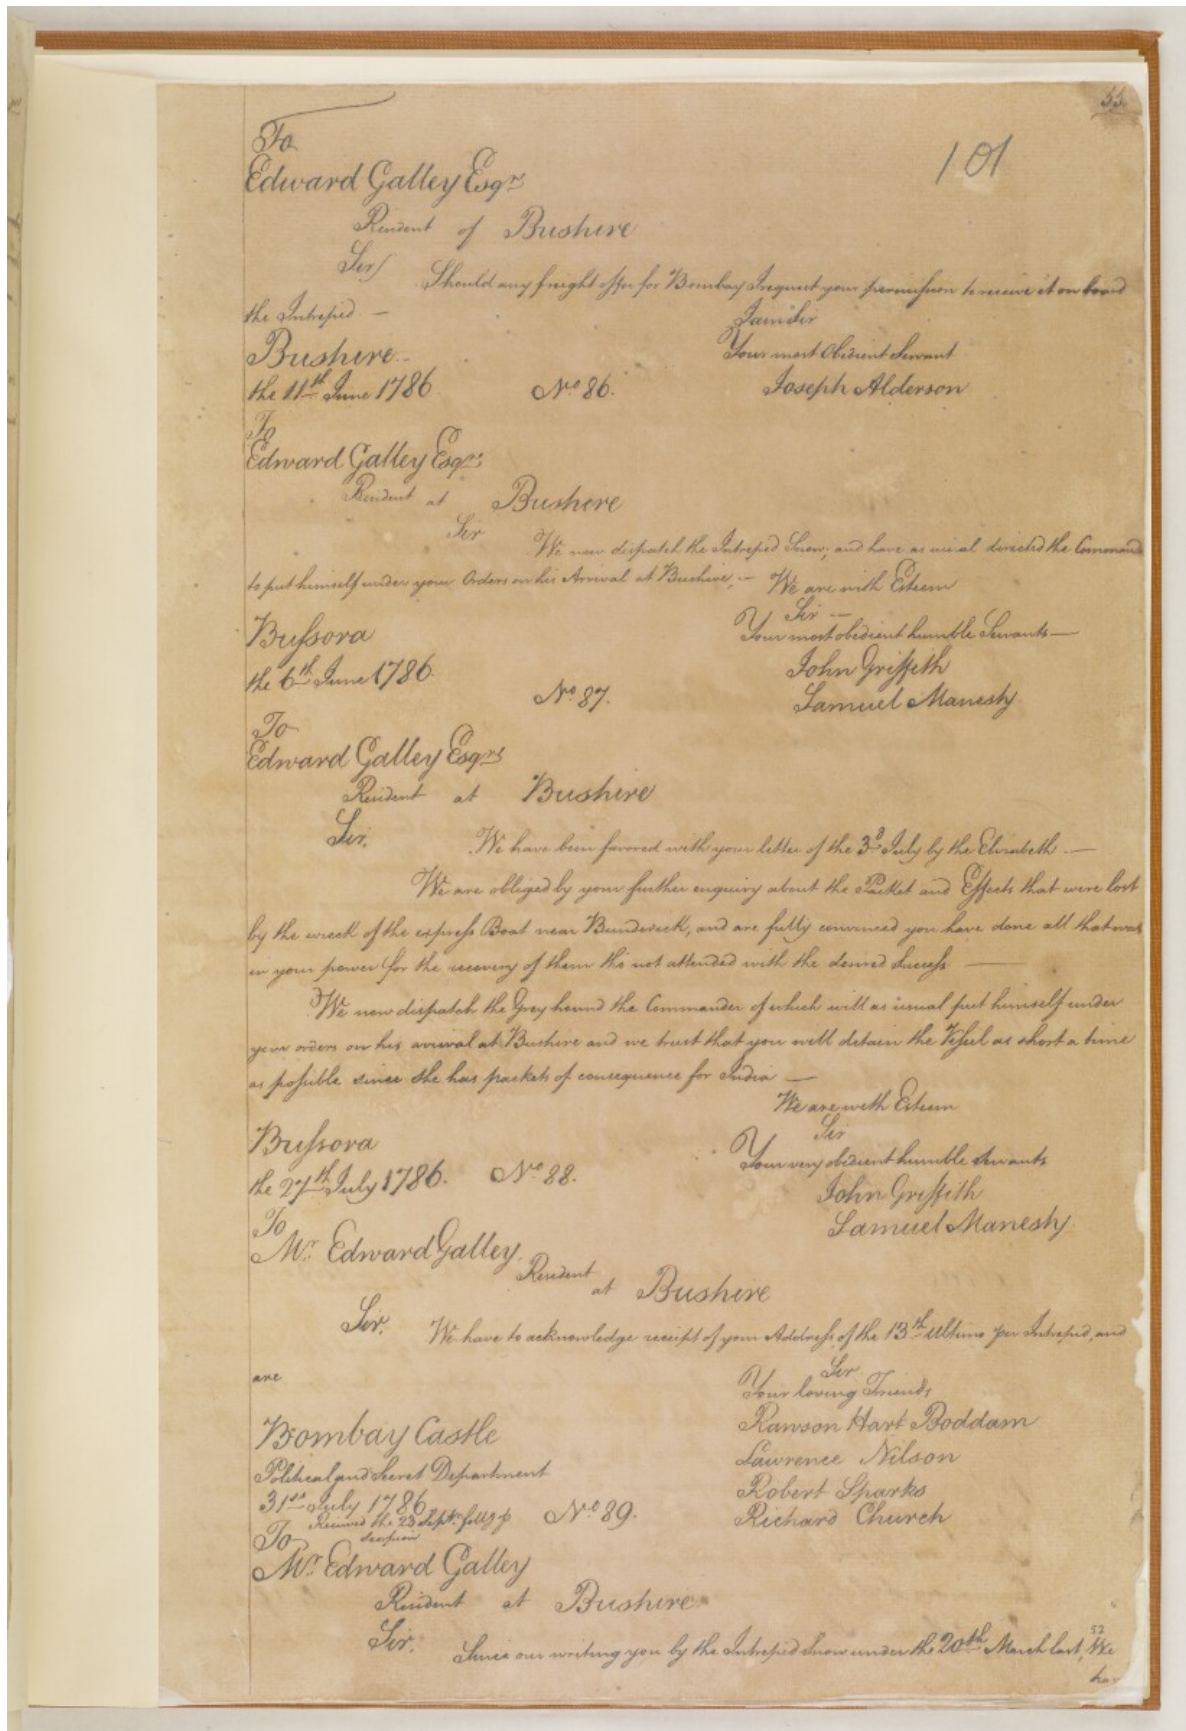 55
101
To
Edward Galley Esqr
Resident of Bushire
Sir/ Should any freight offer for Bombay I request your permission to receive it on board
the Intrepid —
I am Sir
Bushire Your most Obedient Servant
the 11th June 1786 No 86. Joseph Alderson
To
Edward Galley Esqr
Resident at Bushire
Sir We now dispatch the Intrepid Snow, and have as usual directed the Command
to put himself under your Orders on his Arrival at Bushire, — We are with Esteem
Sir —
Bussora Your most obedient humble Servants —
the 6th June 1786 John Griffith
No 87. Samuel Manesty
To
Edward Galley Esqr
Resident at Bushire
Sir, We have been favored with your letter of the 3d July by the Elizabeth. —
We are obliged by your further enquiry about the Packet and Effects that were lost
by the wreck of the express Boat near Bunderick, and are fully convinced you have done all that was
in your power for the recovery of them tho not attended with the desired Success —
We now dispatch the Greyhound the Commander of which will as usual put himself under
your orders on his arrival at Bushire and we trust that you will detain the Vessel as short a time
as possible since she has packets of consequence for India —
We are with Esteem
Sir
Bussora Your very obedient humble Servants
the 27th July 1786. No 88. John Griffith
Samuel Manesty
To
Mr. Edward Galley.
Resident at Bushire
Sir. We have to acknowledge receipt of your Address of the 13th Ultimo per Intrepid, and
are Sir
Your loving Friends
Bombay Castle Rawson Hart Boddam
Political and Secret Department Lawrence Nilson
31st July 1786 Robert Sparks
Received the 23 Septr. No 89. Richard Church
To
Mr Edward Galley
Resident at Bushire
Sir. Since our writing you by the Intrepid Snow under the 20th March last, We
52
hav